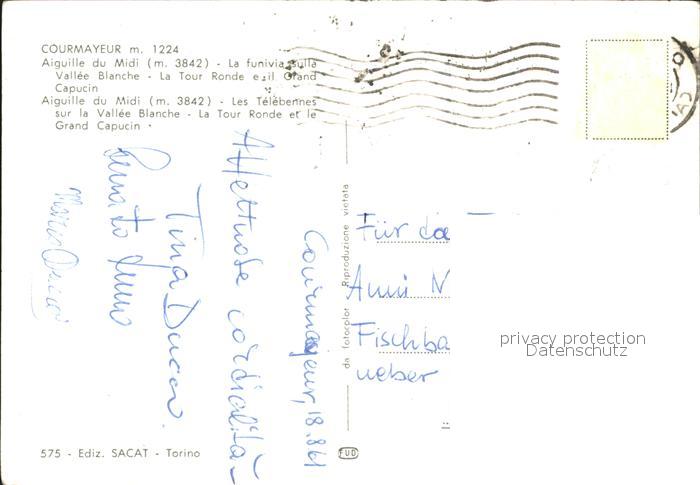 COURMAYEUR m. 1224
Aiguille du Midi (m. 3842) - La funivia sulla
Vallée Blanche - La Tour Ronde e il Grand
Capucin
Aiguille du Midi (m. 3842) - Les Télébennes
sur la Vallée Blanche - La Tour Ronde et le
Grand Capucin
Courmayeur, 18.8.61
Affettuose cordialità
Tina
Renato
da fotocolor Riproduzione vietata
Für
Anni N
Fischba
ueber
privacy protection
Datenschutz
575 - Ediz. SACAT - Torino
FUD